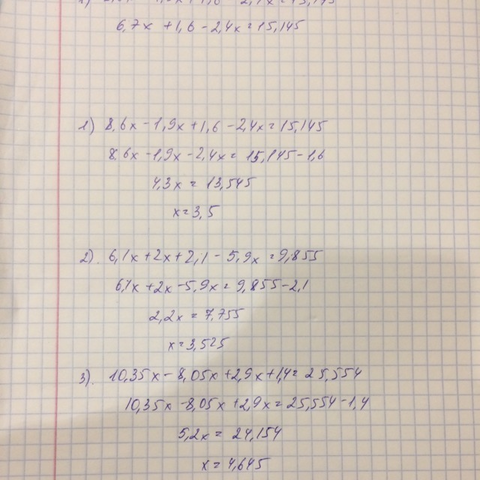 6,7x + 1,6 - 2,4x = 15,145
1) 8,6x - 1,9x + 1,6 - 2,4x = 15,145
8.6x - 1,9x - 2,4x = 15,145 - 1,6
4,3x = 13,545
x = 3,5
2) 6,1x + 2x + 2,1 - 5,9x = 9,855
6,1x + 2x - 5,9x = 9,855 - 2,1
2,2x = 7,755
x = 3,525
3) 10,35x - 8,05x + 2,9x + 1,4 = 25,554
10,35x - 8,05x + 2,9x = 25,554 - 1,4
5,2x = 24,154
x = 4,645